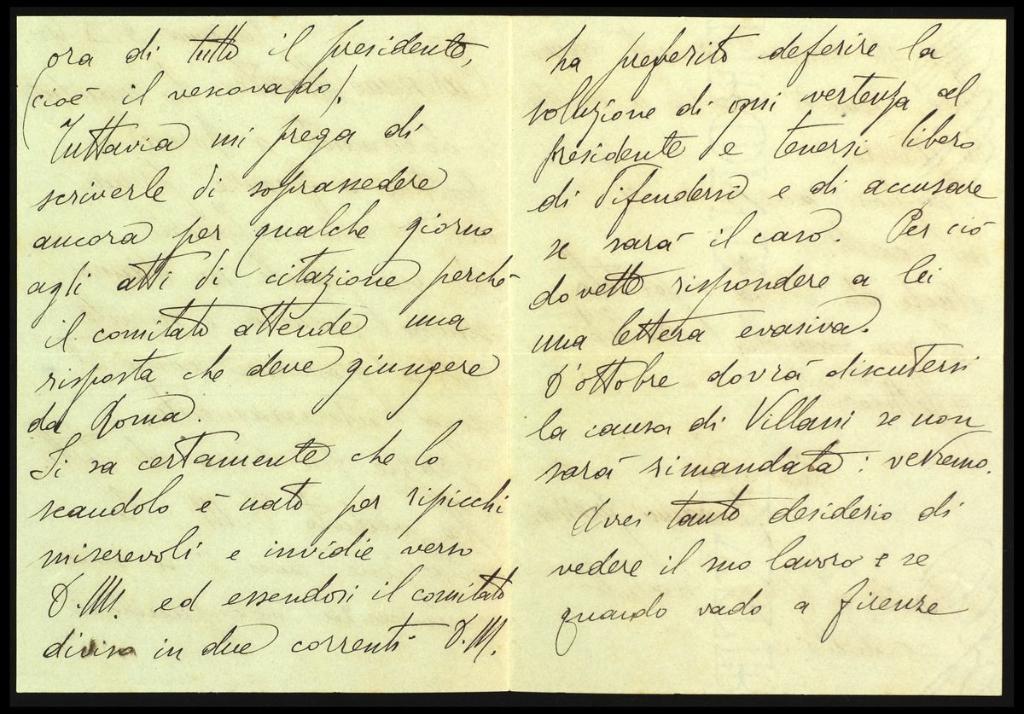 ora di tutto il presidente,
(cioè il vescovado).
Tuttavia mi prega di
scriverle di soprassedere
ancora per qualche giorno
agli atti di citazione perchè
il comitato attende una
risposta che deve giungere
da Roma.
Si sa certamente che lo
scandolo è nato per ripicchi
miserevoli e invidie verso
D.M. ed essendosi il comitato
diviso in due correnti D.M.
ha preferito deferire la
soluzione di ogni vertenza al
presidente e tenersi libero
di difendersi e di accusare
se sarà il caso. Per ciò
dovette rispondere a lei
una lettera evasiva.
D'ottobre dovrà discutersi
la causa di Villani se non
sarà rimandata: vedremo.
Avrei tanto desiderio di
vedere il suo lavoro e se
quando vado a Firenze